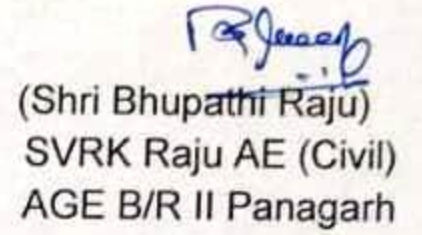 (Shri Bhupathi Raju)
SVRK Raju AE (Civil)
AGE B/R II Panagarh